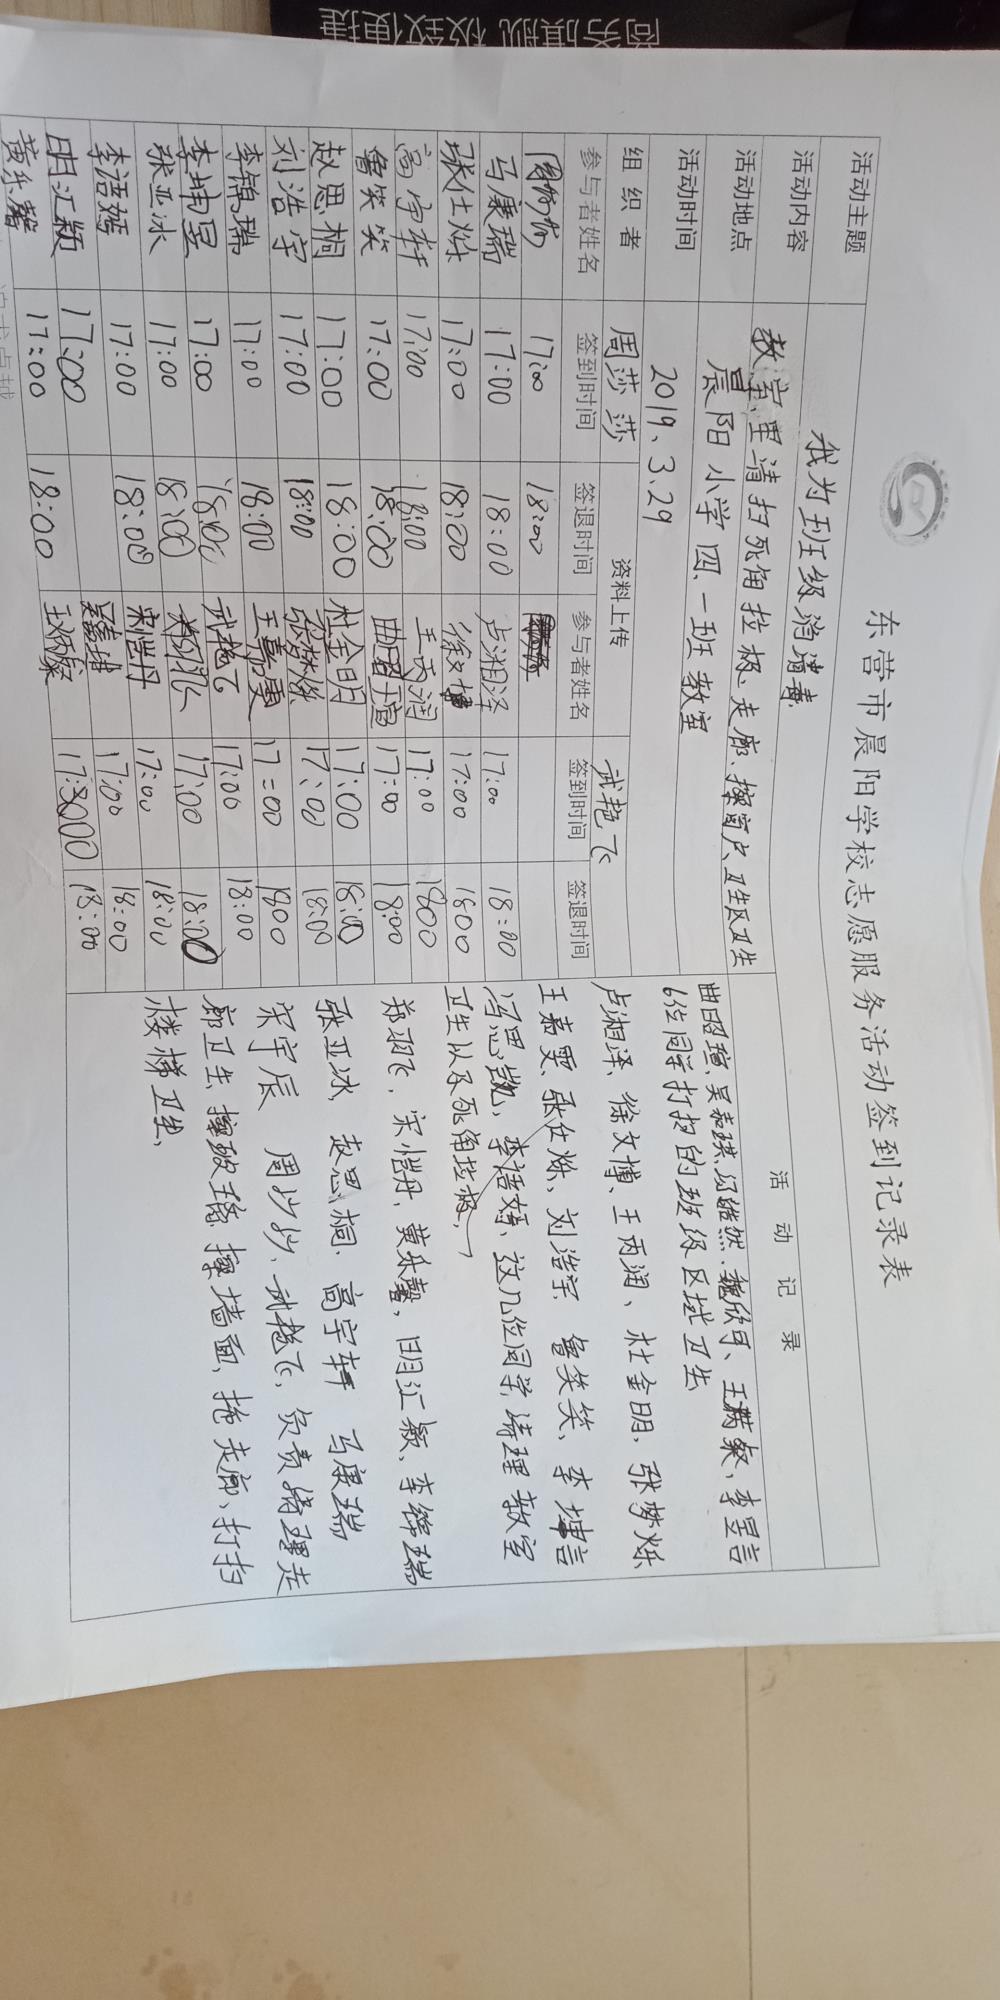 商务旗舰 极致便捷
东营市晨阳学校志愿服务活动签到记录表
活动主题 我为班级消消毒
活动内容 教室里清扫死角垃圾、走廊、擦窗户、卫生区卫生
活动地点 晨阳小学四、一班教室
活动时间 2019、3、29
组织者 周莎莎 资料上传 武艳飞
参与者姓名 签到时间 签退时间 参与者姓名 签到时间 签退时间
17:00 18:00
马康瑞 17:00 18:00 卢湘泽 17:00 18:00
张仕烁 17:00 18:00 徐文博 17:00 1800
高宇轩 17:00 18:00 王丙润 17:00 1800
鲁笑笑 17:00 18:00 曲昭瑄 17:00 18:00
赵思桐 17:00 18:00 杜金明 17:00 18:00
刘浩宇 17:00 18:00 张梦烁 17:00 18:00
李锦瑞 17:00 18:00 王嘉雯 17:00 1800
李坤昱 17:00 18:00 武艳飞 17:00 18:00
张亚冰 17:00 18:00 郑羽飞 17:00 18:00
李语嫣 17:00 18:00 宋恺丹 17:00 18:00
明汇颖 17:00 17:00 18:00
黄乐馨 17:00 18:00 18:00
活动记录
曲昭瑄、魏欣可、
6位同学打扫的班级区域卫生
卢湘泽、徐文博、王丙润、杜金明、张梦烁
王嘉雯、张仕烁、刘浩宇、鲁笑笑、李坤
冯思凯、李语嫣、这几位同学清理教室
卫生以及死角垃圾、
郑羽飞、宋恺丹、黄乐馨、明汇颖、李锦瑞
张亚冰、赵思桐、高宇轩 马康瑞
宋宇辰 周莎莎、武艳飞、负责清理走
廊卫生、擦玻璃、擦墙面、拖走廊、打扫
楼梯卫生、